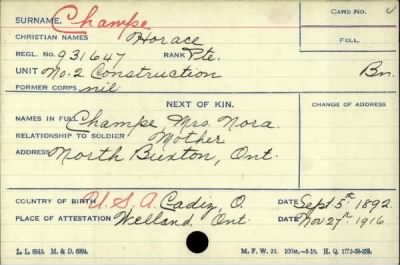 SURNAME. Champe CARD NO.
CHRISTIAN NAMES Horace FOLL.
REGL. NO. 931647 RANK Pte.
UNIT No. 2 Construction Bn.
FORMER CORPS nil
NEXT OF KIN. CHANGE OF ADDRESS
NAMES IN FULL Champe Mrs. Nora.
RELATIONSHIP TO SOLDIER Mother
ADDRESS North Buxton, Ont.
COUNTRY OF BIRTH U.S.A. Cadiz, O. DATE Sept. 5th 1892.
PLACE OF ATTESTATION Welland, Ont. DATE Nov 27th 1916.
L. L. 6945. M. & D. 6994. M. F. W. 22.